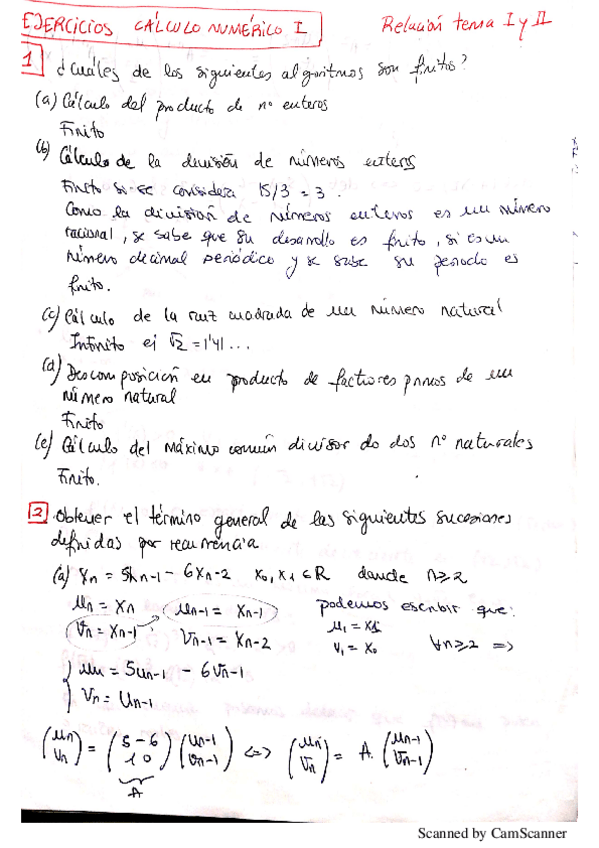 EJERCICIOS CÁLCULO NUMÉRICO I
Relación tema I y II
1 ¿Cuáles de los siguientes algoritmos son finitos?
(a) Cálculo del producto de nº enteros
Finito
(b) Cálculo de la división de números enteros
Finito si se considera 15/3 = 3.
Como la división de números enteros es un número
racional, se sabe que su desarrollo es finito, si es un
número decimal periódico y se sabe su periodo es
finito.
(c) Cálculo de la raiz cuadrada de un número natural
Infinito ej √2 = 1'41...
(d) Descomposición en producto de factores primos de un
número natural
Finito
(e) Cálculo del máximo común divisor do dos nº naturales
Finito.
2 Obtener el término general de las siguientes sucesiones
definidas por recurrencia
(a) Xn = 5Xn-1 - 6Xn-2 x0, x1 ∈ R donde n≥2
un = xn un-1 = xn-1 podemos escribir que:
vn = xn-1 vn-1 = xn-2 u1 = x1
v1 = x0 ∀n≥2 =>
{ un = 5un-1 - 6vn-1
vn = un-1
(un vn) = (5 -6 1 0) (un-1 vn-1) <=> (un vn) = A. (un-1 vn-1)
A
Scanned by CamScanner